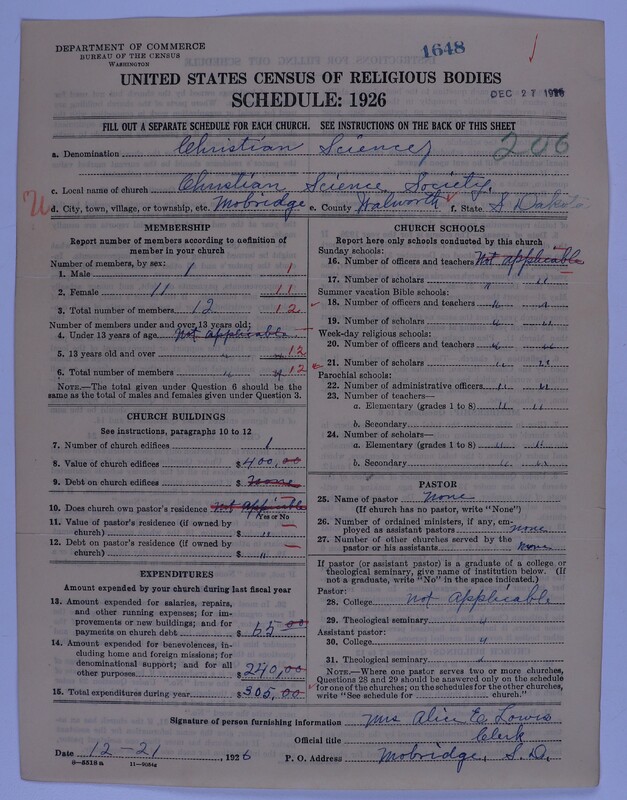 DEPARTMENT OF COMMERCE
BUREAU OF THE CENSUS
WASHINGTON
1648
UNITED STATES CENSUS OF RELIGIOUS BODIES
SCHEDULE: 1926
DEC 27 1926
FILL OUT A SEPARATE SCHEDULE FOR EACH CHURCH. SEE INSTRUCTIONS ON THE BACK OF THIS SHEET
a. Denomination Christian Science
206
c. Local name of church Christian Science Society.
d. City, town, village, or township, etc. Mobridge e. County Walworth f. State S Dakota
MEMBERSHIP
Report number of members according to definition of
member in your church
Number of members, by sex:
1. Male 1 1
2. Female 11 11
3. Total number of members 12 12
Number of members under and over 13 years old:
4. Under 13 years of age Not applicable
5. 13 years old and over " 12
6. Total number of members " 12
NOTE.—The total given under Question 6 should be
same as the total of males and females given under Question 3.
CHURCH BUILDINGS
See instructions, paragraphs 10 to 12
7. Number of church edifices 1
8. Value of church edifices $400,00
9. Debt on church edifices $ None
10. Does church own pastor's residence Not Applicable
Yes or No
11. Value of pastor's residence (if owned by
church) $ "
12. Debt on pastor's residence (if owned by
church) $ "
EXPENDITURES
Amount expended by your church during last fiscal year
13. Amount expended for salaries, repairs,
and other running expenses; for im-
provements or new buildings; and for
payments on church debt $ 65 00
14. Amount expended for benevolences, in-
cluding home and foreign missions; for
denominational support; and for all
other purposes $240,00
15. Total expenditures during year $305,00
CHURCH SCHOOLS
Report here only schools conducted by this church
Sunday schools:
16. Number of officers and teachers Not applicable
17. Number of scholars " "
Summer vacation Bible schools:
18. Number of officers and teachers " "
19. Number of scholars " "
Week-day religious schools:
20. Number of officers and teachers " "
21. Number of scholars " "
Parochial schools:
22. Number of administrative officers " "
23. Number of teachers—
a. Elementary (grades 1 to 8) " "
b. Secondary
24. Number of scholars—
a. Elementary (grades 1 to 8) " "
b. Secondary " "
PASTOR
25. Name of pastor None
(If church has no pastor, write "None")
26. Number of ordained ministers, if any, em-
ployed as assistant pastors none
27. Number of other churches served by the
pastor or his assistants none
If pastor (or assistant pastor) is a graduate of a college or
theological seminary, give name of institution below. (If
not a graduate, write "No" in the space indicated.)
Pastor:
28. College not applicable
29. Theological seminary "
Assistant pastor:
30. College "
31. Theological seminary "
NOTE.—Where one pastor serves two or more churches,
Questions 28 and 29 should be answered only on the schedule
for one of the churches; on the schedules for the other churches,
write "See schedule for church."
Signature of person furnishing information Mrs Alice E. Lewis
Official title Clerk
Date 12-21, 1926 P. O. Address Mobridge, S. D.
8-5518a 11-9034a